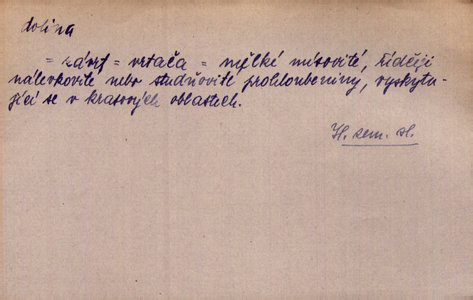 dolina
= závrt = vrtača = mělké mísovité, řídčeji
nálevkovité nebo studňovité prohloubeniny, vyskytu-
jící se v krasových oblastech.
H. sem. st.